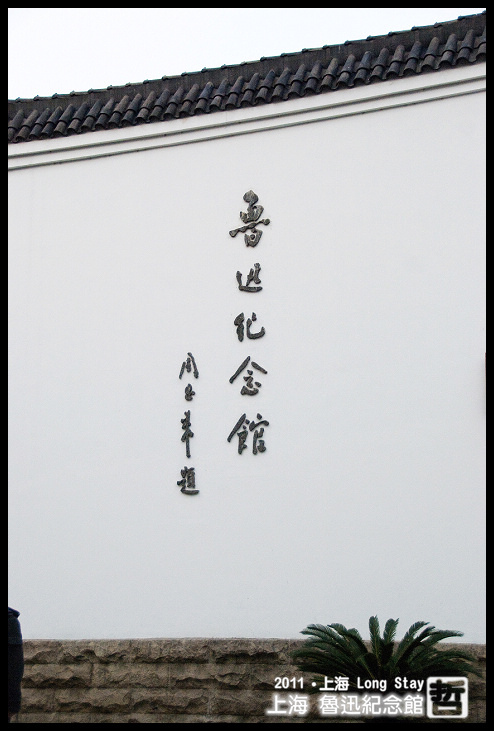 魯迅纪念館
周恩来題
2011 • 上海 Long Stay
上海 魯迅紀念館
哲